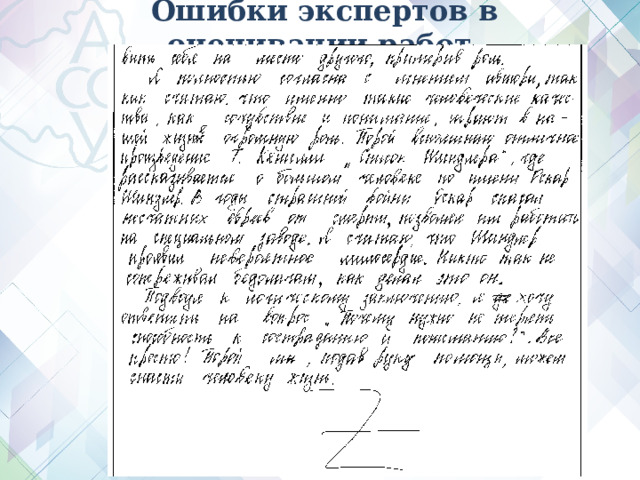 Ошибки экспертов в
оценивании работ
вить себя на место другого, примерив роль.
Я полностью согласна с мнением автора, так
как считаю, что именно такие человеческие качес-
тва, как сочувствие и понимание, играют в на-
шей жизни огромную роль. Порой вспоминаю отличное
произведение Т. Кенелли „Список Шиндлера", где
рассказывается о большом человеке по имени Оскар
Шиндлер. В годы страшной войны Оскар спасал
несчастных евреев от смерти, позволяя им работать
на специальном заводе. Я считаю, что Шиндлер
проявил невероятное милосердие. Никто так не
сопереживал бедолагам, как делал это он.
Подводя к логическому заключению, я хочу
ответить на вопрос „Почему нужно не терять
способность к состраданию и пониманию?". Все
просто! Порой мы, подав руку помощи, можем
спасти человеку жизнь.